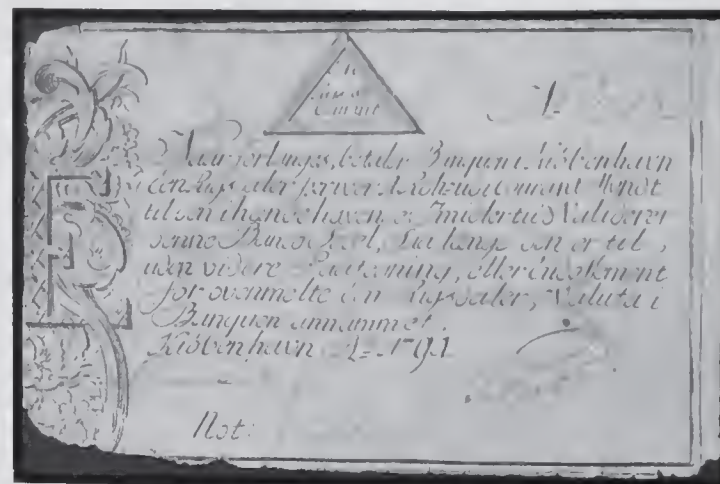 Courant
Naar forlanges, betaler Banquen i Kiöbenhavn
een Rigsdaler courant Myndt
til den ihændehaven, Imidlertid Validerer
denne Banco Sedel, Saa længe den er til,
uden videre Paategning, eller indossement
for ovenmelte een Rigsdaler, Valuta i
Banquen annammet.
Kiöbenhavn A: 1791
Not: